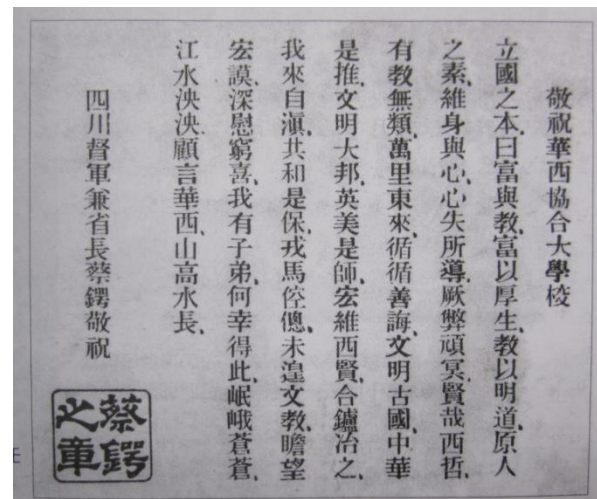 敬祝華西協合大學校
立國之本、曰富與教、富以厚生、教以明道、原人
之素、維身與心、心失所導、厥弊頑冥、賢哉西哲、
有教無類、萬里東來、循循善誨、文明古國、中華
是推、文明大邦、英美是師、宏維西賢、合鑪冶之、
我來自滇、共和是保、戎馬倥傯、未遑文教、瞻望
宏謨、深慰窮喜、我有子弟、何幸得此、岷峨蒼蒼、
江水泱泱、顧言華西、山高水長、
四川督軍兼省長蔡鍔敬祝
蔡鍔之章